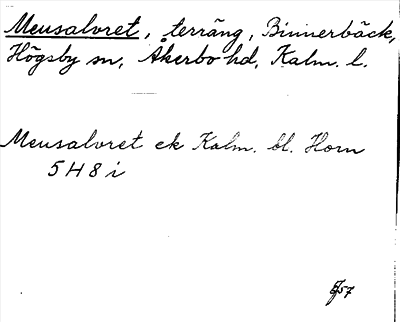 Meusalvret, terräng, Binnerbäck,
Högsby sn, Åkerbo hd, Kalm. l.
Meusalvret ek Kalm. bl. Horn
5 H 8 i
57